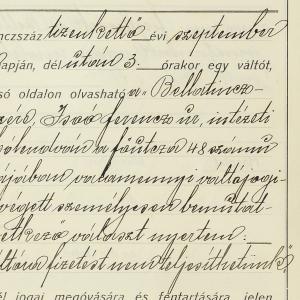 nczszáz tizenkettő évi szeptember
apján, dél után 3. órakor egy váltót,
só oldalon olvasható a „Bellatincz-
Isoó ferencz úr, intézeti
a főutcza 48 számú
ajában valamennyi váltójogi-
végett személyesen bemutat-
etkező választ nyertem:
fizetést nem teljesíthetünk”
él jogai megóvására és fentartására jelen